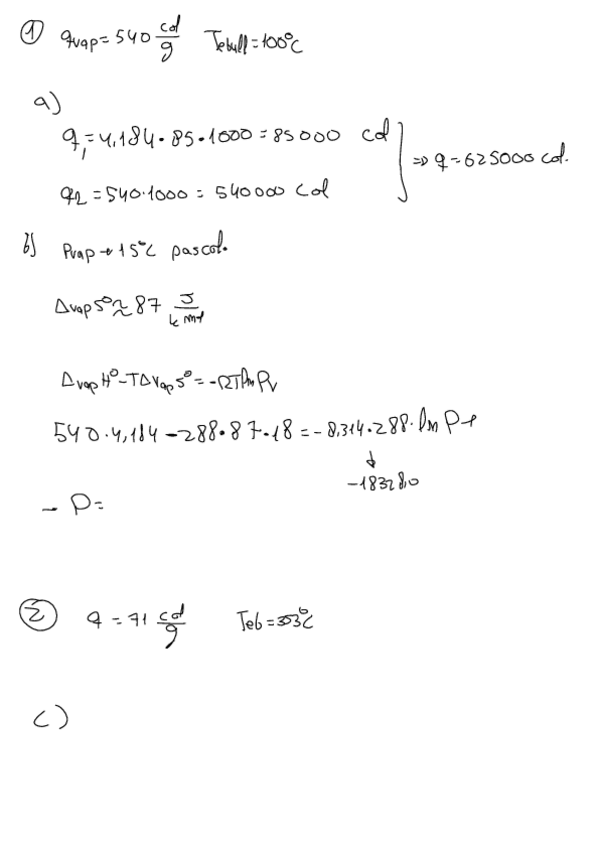 ① qvap = 540 cal/g Tebull = 100°C
a)
q₁ = 4,184 · 85 · 1000 = 85000 cal
⇒ q = 625000 cal.
q₂ = 540·1000 = 540000 cal
b) Pvap → 15°C pascal.
ΔvapS° ≈ 87 J/k mol
ΔvapH° - TΔvapS° = -RT ln Pv
540 · 4,184 - 288 · 87 · 18 = - 8,314 · 288 · ln P →
↓
-18328,0
→ P =
② q = 71 cal/g Teb = 353°C
c)